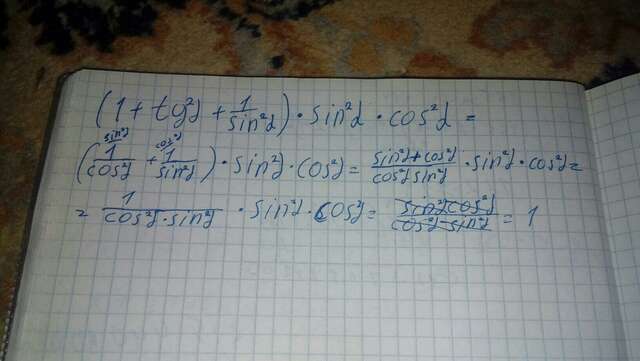 (1 + tg²α + 1/sin²α) · sin²α · cos²α =
(1/cos²α ^sin²α + 1/sin²α ^cos²α) · sin²α · cos²α = (sin²α + cos²α)/(cos²α sin²α) · sin²α · cos²α =
= 1/(cos²α · sin²α) · sin²α · cos²α = (sin²α cos²α)/(cos²α · sin²α) = 1